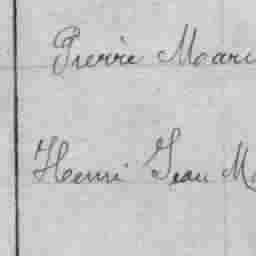 Pierre Mari
Henri Jean M